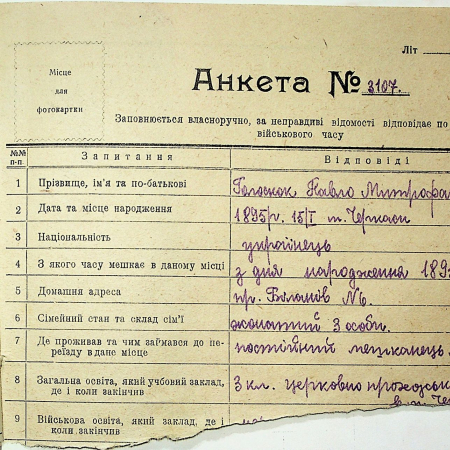 Літ
Місце
для
фотокартки
Анкета № 3107.
Заповнюється власноручно, за неправдиві відомості відповідає по
військового часу
№№ п-п. Запитання Відповіді
1 Прізвище, ім'я та по-батькові Павло Митрофа
2 Дата та місце народження 1895р. 15/I м. Черкаси
3 Національність українець
4 З якого часу мешкає в даному місці з дня народження 189
5 Домашня адреса пр. № 6.
6 Сімейний стан та склад сім'ї жонатий 3 особи.
7 Де проживав та чим займався до пе-
реїзду в дане місце постійний мешканець
8 Загальна освіта, який учбовий заклад,
де і коли закінчив 3 кл. церковно
9 Військова освіта, який заклад, де і
коли закінчив